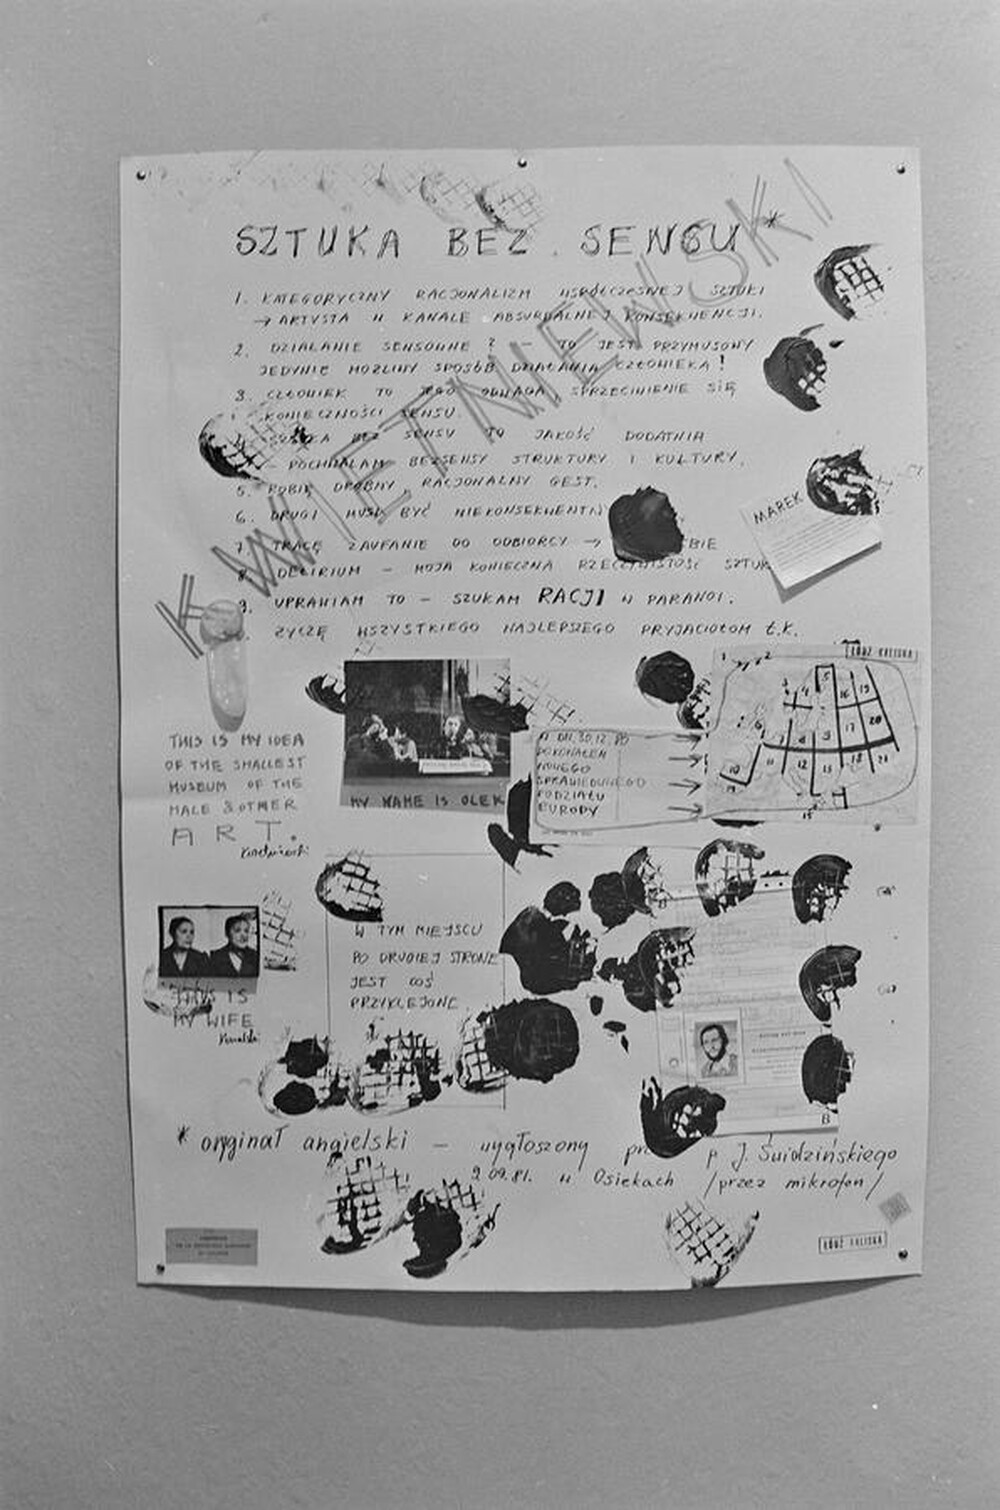 SZTUKA BEZ SENSU *
KWIETNIEWSKI
1. KATEGORYCZNY RACJONALIZM WSPÓŁCZESNEJ SZTUKI
→ ARTYSTA W KANALE ABSURDALNEJ KONSEKWENCJI.
2. DZIAŁANIE SENSOWNE ? – TO JEST PRZYMUSOWY
JEDYNIE MOŻLIWY SPOSÓB DZIAŁANIA CZŁOWIEKA!
3. CZŁOWIEK TO JEGO ODWAGA, SPRZECIWIENIE SIĘ
KONIECZNOŚCI SENSU.
BEZ SENSU TO JAKOŚĆ DODATNIA
– POCHWALAM BEZSENSY STRUKTURY I KULTURY.
5. ROBIĘ DROBNY RACJONALNY GEST.
6. DRUGI MUSI BYĆ
7. TRACĘ ZAUFANIE DO ODBIORCY →
8. DELIRIUM – MOJA KONIECZNA RZECZYWISTOŚĆ
9. UPRAWIAM TO – SZUKAM RACJI W PARANOI.
ŻYCZĘ WSZYSTKIEGO NAJLEPSZEGO PRZYJACIOŁOM Ł.K.
MAREK
THIS IS MY IDEA
OF THE SMALLEST
MUSEUM OF THE
MALE & OTHER
ART.
MY NAME IS OLEK
W DN. 30.12.
DOKONAŁEM
NOWEGO
SPRAWIEDLIWEGO
PODZIAŁU
EURODY
ŁÓDŹ KALISKA
1 2
3 4 5 16 19
6 7 8 9 17 20
10 11 12 13 18 21
14
15
W TYM MIEJSCU
PO DRUGIEJ STRONIE
JEST COŚ
PRZYKLEJONE
THIS IS
MY WIFE
8
* oryginał angielski – wygłoszony p J. Świdzińskiego
2.09.81. w Osiekach /przez mikrofon/
ŁÓDŹ KALISKA